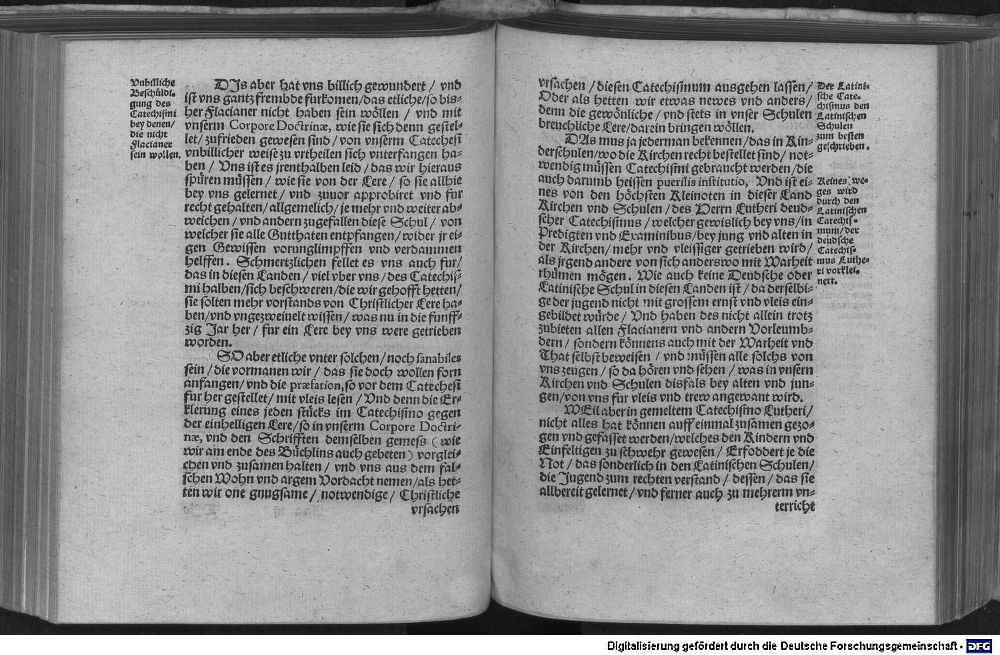 Vnbilliche
Beschüldi-
gung des
Catechismi
bey denen/
die nicht
Flacianer
sein wollen.
DIs aber hat vns billich gewundert / vnd
ist vns gantz frembde fürkomen/das etliche/so bis-
her Flacianer nicht haben sein wöllen / vnd mit
vnserm Corpore Doctrinæ, wie sie sich denn gestel-
let/zufrieden gewesen sind/von vnserm Catechesi
vnbillicher weise zu vrtheilen sich vnterfangen ha-
ben / Vns ist es jrenthalben leid/das wir hieraus
spüren müssen / wie sie von der Lere / so sie allhie
bey vns gelernet / vnd zuuor approbiret vnd für
recht gehalten/allgemelich/je mehr vnd weiter ab-
weichen / vnd andern zugefallen diese Schul / von
welcher sie alle Gutthaten entpfangen/wider jr ei-
gen Gewissen vorunglimpffen vnd verdammen
helffen. Schmertzlichen fellet es vns auch für/
das in diesen Landen/viel vber vns/des Catechis-
mi halben/sich beschweren/die wir gehofft hetten/
sie solten mehr vorstands von Christlicher Lere ha-
ben/vnd vngezweiuelt wissen/was nu in die funff-
zig Jar her / für ein Lere bey vns were getrieben
worden.
SO aber etliche vnter solchen/noch sanabiles
sein/die vormanen wir/das sie doch wollen forn
anfangen/vnd die præfation,so vor dem Catechesi
für her gestellet/mit vleis lesen / Vnd denn die Er-
klerung eines jeden stücks im Catechismo gegen
der einhelligen Lere/so in vnserm Corpore Doctri-
næ, vnd den Schrifften demselben gemess ( wie
wir am ende des Büchlins auch gebeten) vorglei-
chen vnd zusamen halten / vnd vns aus dem fal-
schen Wohn vnd argem Vordacht nemen/als het-
ten wir one gnugsame / notwendige / Christliche
vrsachen
vrsachen /diesen Catechismum ausgehen lassen/
Oder als hetten wir etwas newes vnd anders/
denn die gewönliche / vnd stets in vnser Schulen
breuchliche Lere/darein bringen wöllen.
DAs mus ja jederman bekennen/das in Kin-
derschulen/wo die Kirchen recht bestellet sind/ not-
wendig müssen Catechismi gebraucht werden/die
auch darumb heissen puerilis institutio, Vnd ist ei-
nes von den höchsten Kleinoten in dieser Land
Kirchen vnd Schulen/des Herrn Lutheri deud-
scher Catechismus/welcher gewislich bey vns/in
Predigten vnd Examinibus/bey jung vnd alten in
der Kirchen/mehr vnd vleissiger getrieben wird/
als jrgend andere von sich anderswo mit Warheit
rhümen mögen. Wie auch keine Deudsche oder
Latinische Schul in diesen Landen ist / da derselbi-
ge der jugend nicht mit grossem ernst vnd vleis ein-
gebildet würde/ Vnd haben des nicht allein trotz
zubieten allen Flacianern vnd andern Vorleumb-
dern / sondern können​s auch mit der Warheit vnd
That selbst beweisen / vnd müssen alle solchs von
vns zeugen / so da hören vnd sehen / was in vnsern
Kirchen vnd Schulen disfals bey alten vnd jun-
gen/von vns für vleis vnd trew angewant wird.
WEil aber in gemeltem Catechismo Lutheri/
nicht alles hat können auff einmal zusamen gezo-
gen vnd gefasset werden/welches den Kindern vnd
Einfeltigen zu schwehr gewesen/ Erfoddert je die
Not / das sonderlich in den Latinischen Schulen/
die Jugend zum rechten verstand / dessen / das sie
allbereit gelernet/vnd ferner auch zu mehrerm vn-
terricht
Der Latini-
sche Cate-
chismus den
Latinischen
Schulen
zum besten
geschrieben.
Keines we-
ges wird
durch den
Latinischen
Catechis-
mum/der
deudsche
Catechis-
mus Luthe-
ri vorklei-
nert.
Digitalisierung gefördert durch die Deutsche Forschungsgemeinschaft - DFG